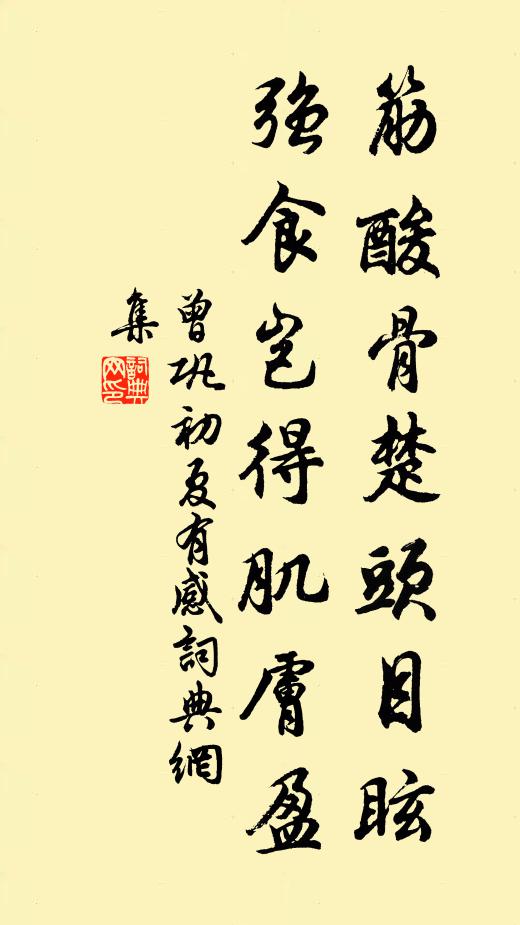 筋酸骨楚頭目眩
強食豈得肌膚盈
曾巩初夏有感詞典網
集
詞典
网印